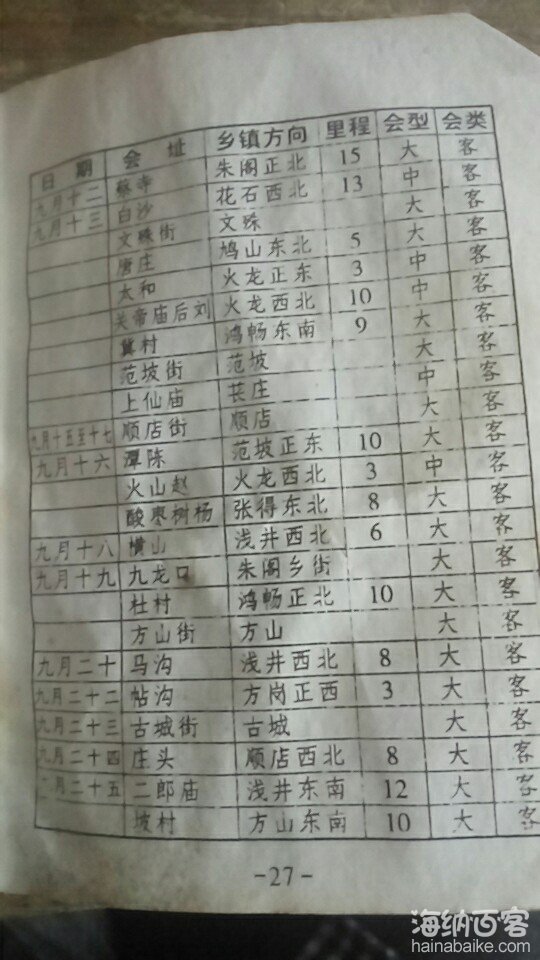 日 期 会 址 乡镇方向 里程 会型 会类
九月十二 蔡寺 朱阁正北 15 大 客
九月十三 白沙 花石西北 13 中 客
文殊街 文殊 大 客
唐庄 鸠山东北 5 大 客
太和 火龙正东 3 中 客
关帝庙后刘 火龙西北 10 中 客
冀村 鸿畅东南 9 大 客
范坡街 范坡 大 客
上仙庙 苌庄 中 客
九月十五至十七 顺店街 顺店 大 客
九月十六 潭陈 范坡正东 10 大 客
火山赵 火龙西北 3 中 客
酸枣树杨 张得东北 8 大 客
九月十八 横山 浅井西北 6 大 客
九月十九 九龙口 朱阁乡街 大 客
杜村 鸿畅正北 10 大 客
方山街 方山 大 客
九月二十 马沟 浅井西北 8 大 客
九月二十二 帖沟 方岗正西 3 大 客
九月二十三 古城街 古城 大 客
九月二十四 庄头 顺店西北 8 大 客
月二十五 二郎庙 浅井东南 12 大 客
坡村 方山东南 10 大 客
-27-
海纳百客
hainabaike.com